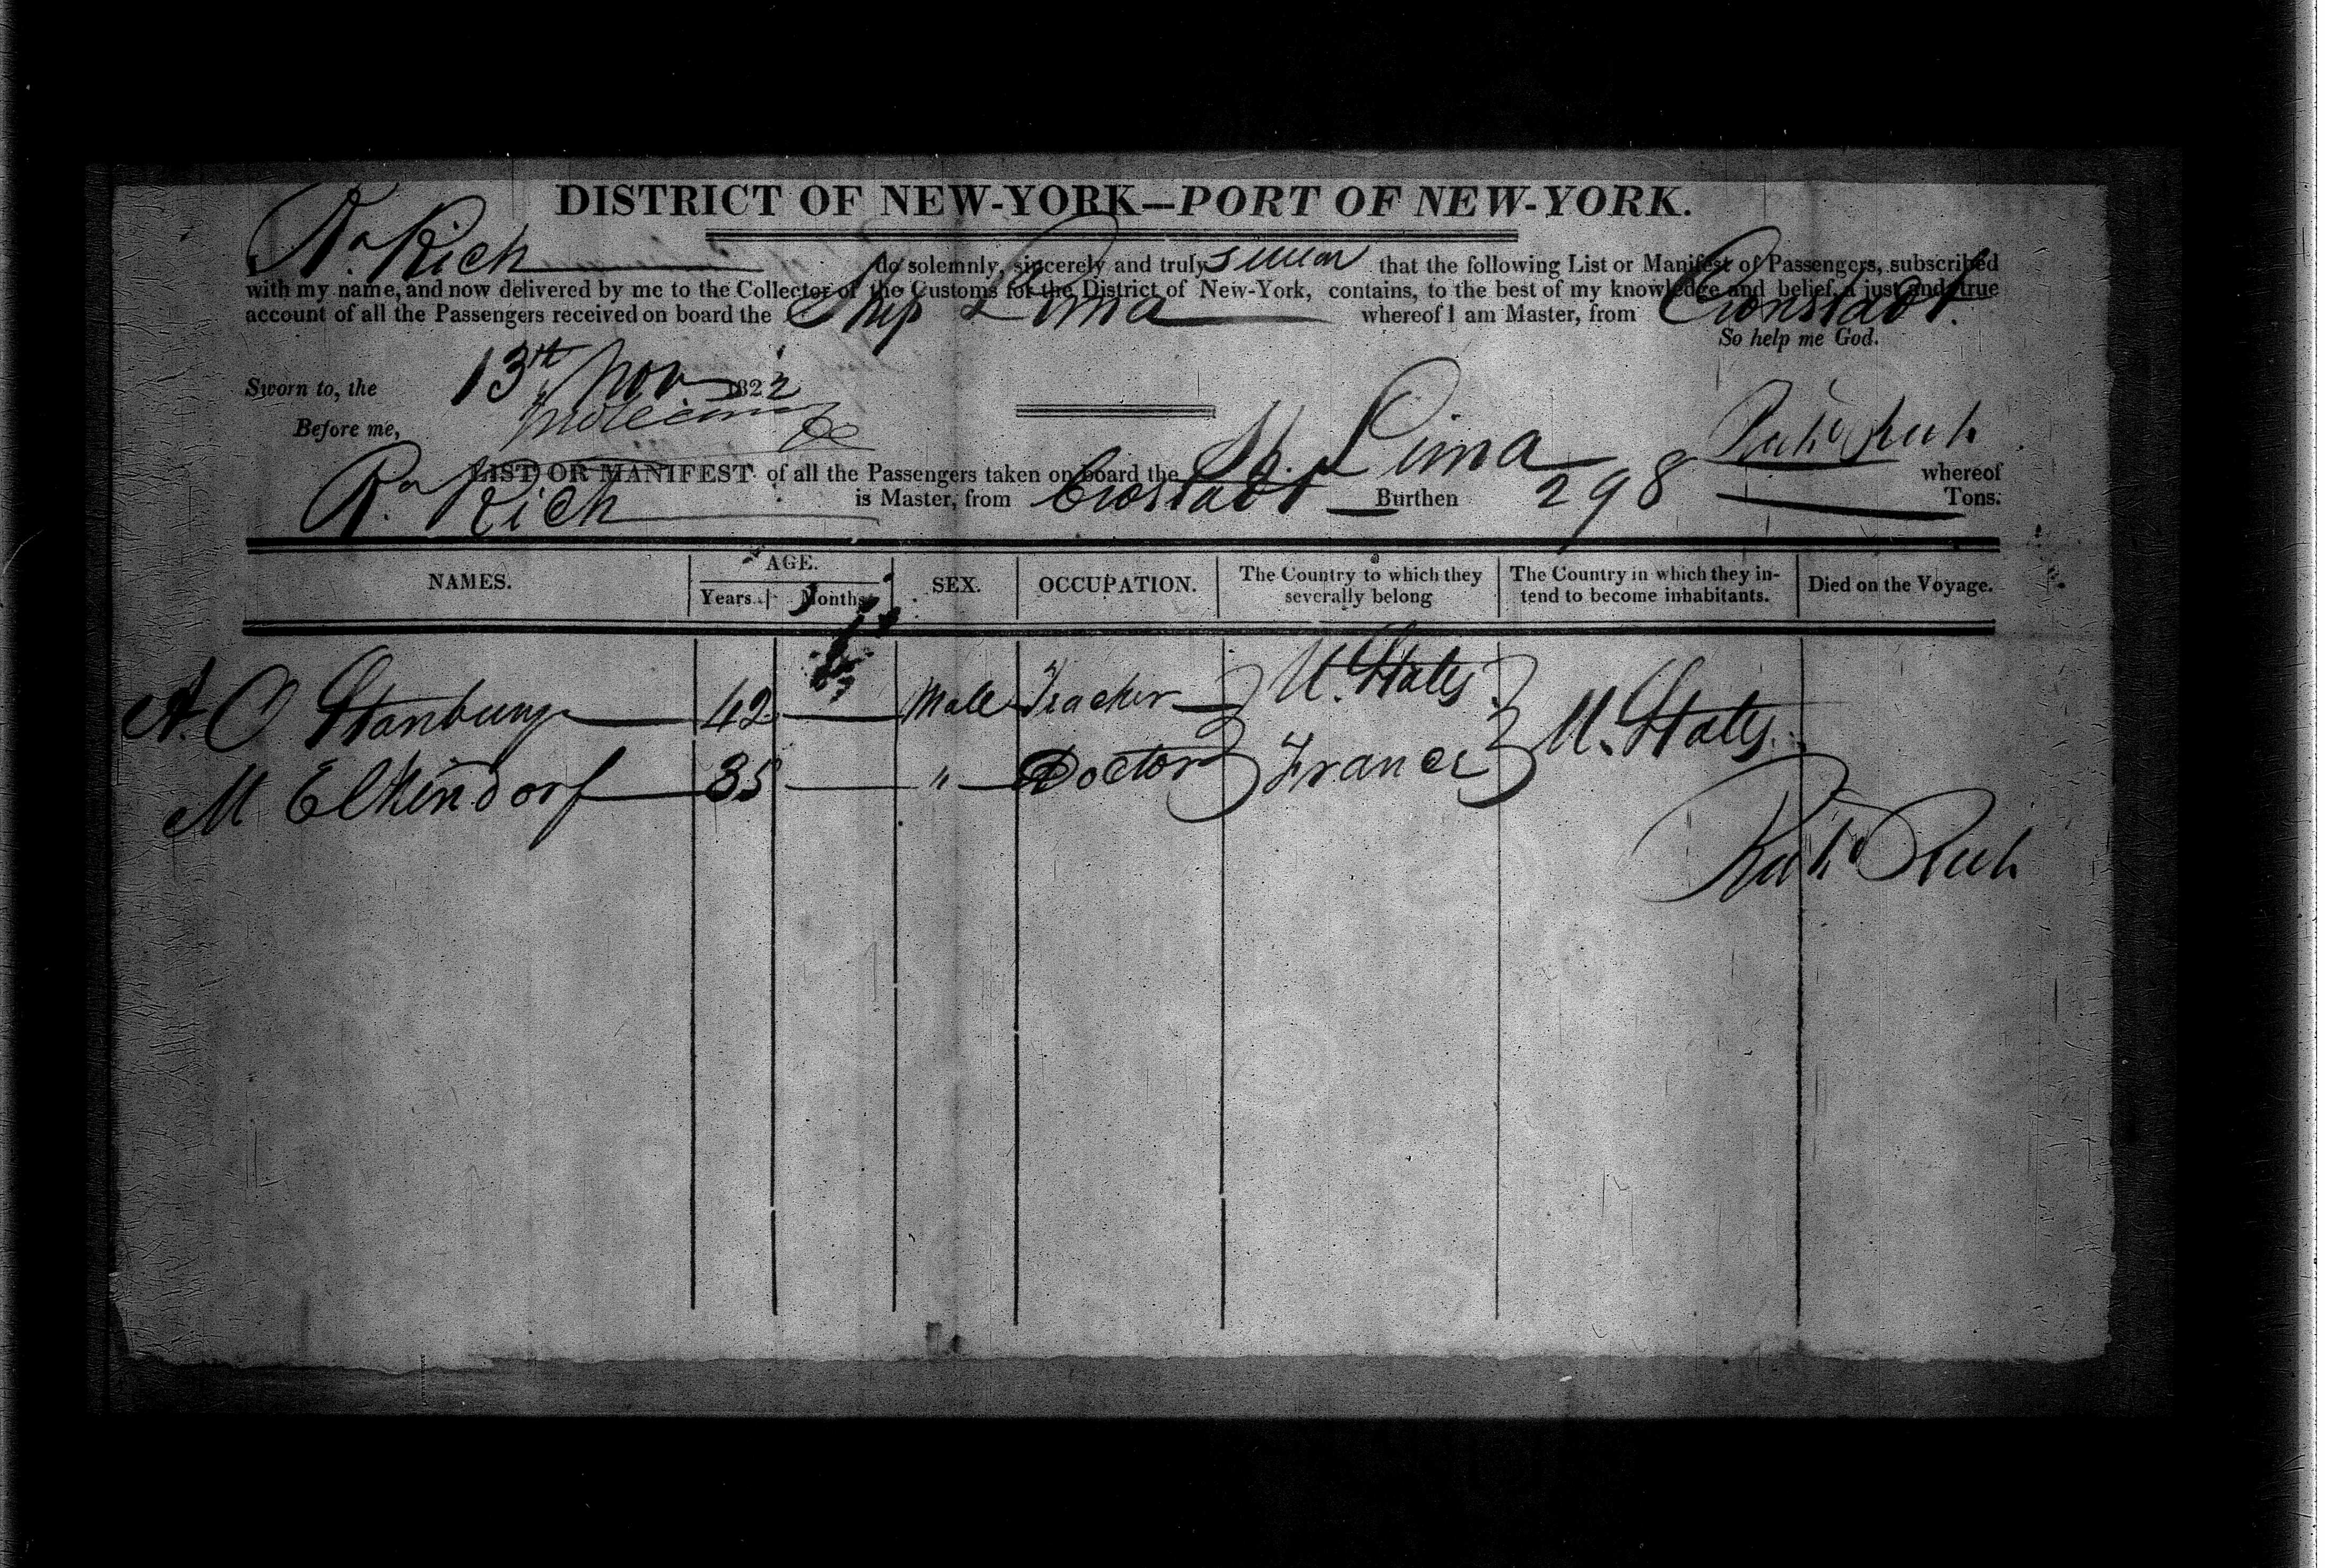 DISTRICT OF NEW-YORK—PORT OF NEW-YORK.
Rd. Rich do solemnly, sincerely and truly swear that the following List or Manifest of Passengers, subscribed
with my name, and now delivered by me to the Collector of the Customs for the District of New-York, contains, to the best of my knowledge and belief, a just and true
account of all the Passengers received on board the Ship Lima whereof I am Master, from Cronstadt.
So help me God.
Sworn to, the 13th Nov 1822
Before me,
LIST OR MANIFEST of all the Passengers taken on board the Sh. Lima whereof
Rd. Rich is Master, from Cronstadt Burthen 298 Tons.
NAMES. AGE. Years. Months. SEX. OCCUPATION. The Country to which they severally belong The Country in which they intend to become inhabitants. Died on the Voyage.
A. O Stanbury 42 Male Teacher U. States U. States
M Elkendorf 35 " Doctor France
Rich